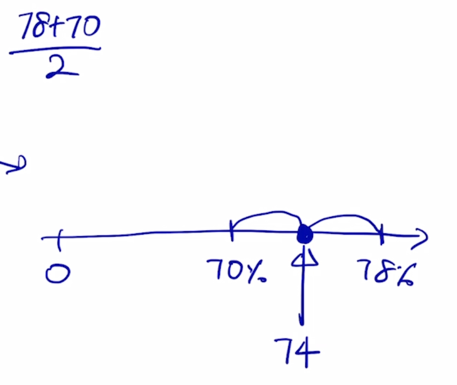 78+70
2
0 70% 78%
74